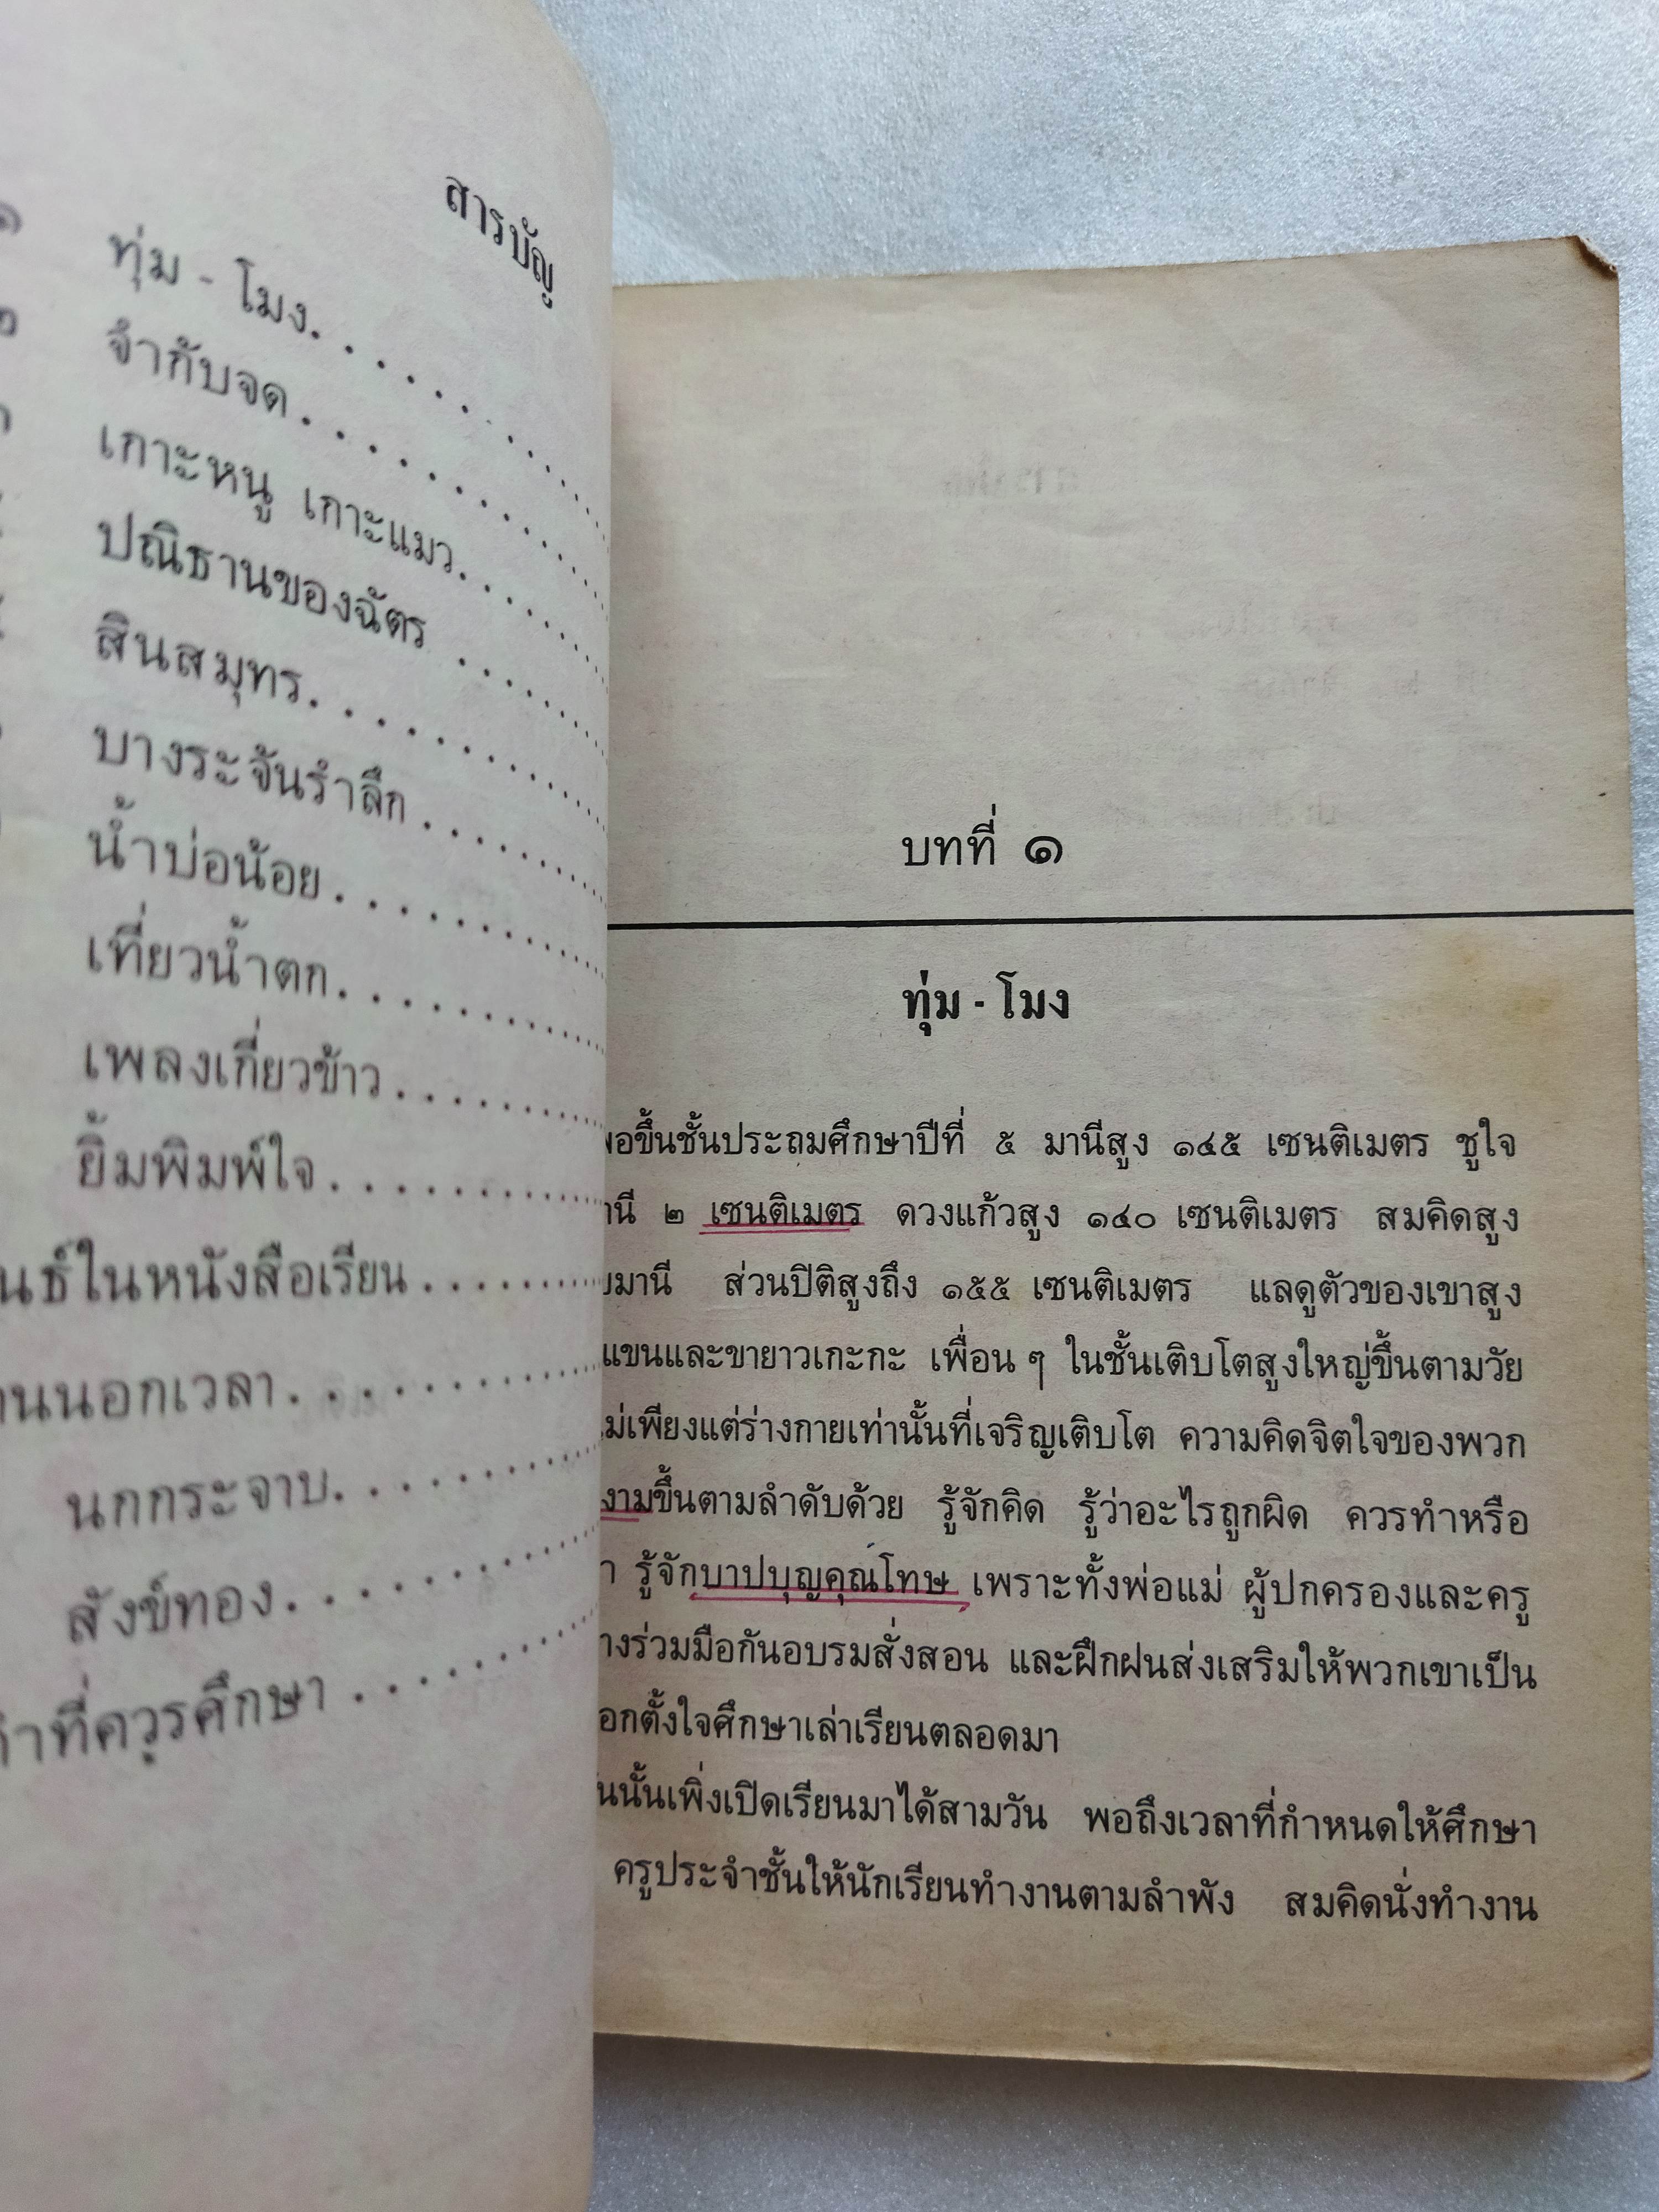 สารบัญ
๑ ทุ่ม - โมง
จำกับจด
เกาะหนู เกาะแมว
ปณิธานของฉัตร
สินสมุทร
บางระจันรำลึก
น้ำบ่อน้อย
เที่ยวน้ำตก
เพลงเกี่ยวข้าว
ยิ้มพิมพ์ใจ
นธ์ในหนังสือเรียน
านนอกเวลา
นกกระจาบ
สังข์ทอง
ำที่ควรศึกษา
บทที่ ๑
ทุ่ม - โมง
พอขึ้นชั้นประถมศึกษาปีที่ ๕ มานีสูง ๑๔๕ เซนติเมตร ชูใจ
านี ๒ เซนติเมตร ดวงแก้วสูง ๑๔๐ เซนติเมตร สมคิดสูง
มานี ส่วนปิติสูงถึง ๑๕๕ เซนติเมตร แลดูตัวของเขาสูง
แขนและขายาวเกะกะ เพื่อน ๆ ในชั้นเติบโตสูงใหญ่ขึ้นตามวัย
ม่เพียงแต่ร่างกายเท่านั้นที่เจริญเติบโต ความคิดจิตใจของพวก
งามขึ้นตามลำดับด้วย รู้จักคิด รู้ว่าอะไรถูกผิด ควรทำหรือ
า รู้จักบาปบุญคุณโทษ เพราะทั้งพ่อแม่ ผู้ปกครองและครู
างร่วมมือกันอบรมสั่งสอน และฝึกฝนส่งเสริมให้พวกเขาเป็น
อกตั้งใจศึกษาเล่าเรียนตลอดมา
นนั้นเพิ่งเปิดเรียนมาได้สามวัน พอถึงเวลาที่กำหนดให้ศึกษา
ครูประจำชั้นให้นักเรียนทำงานตามลำพัง สมคิดนั่งทำงาน